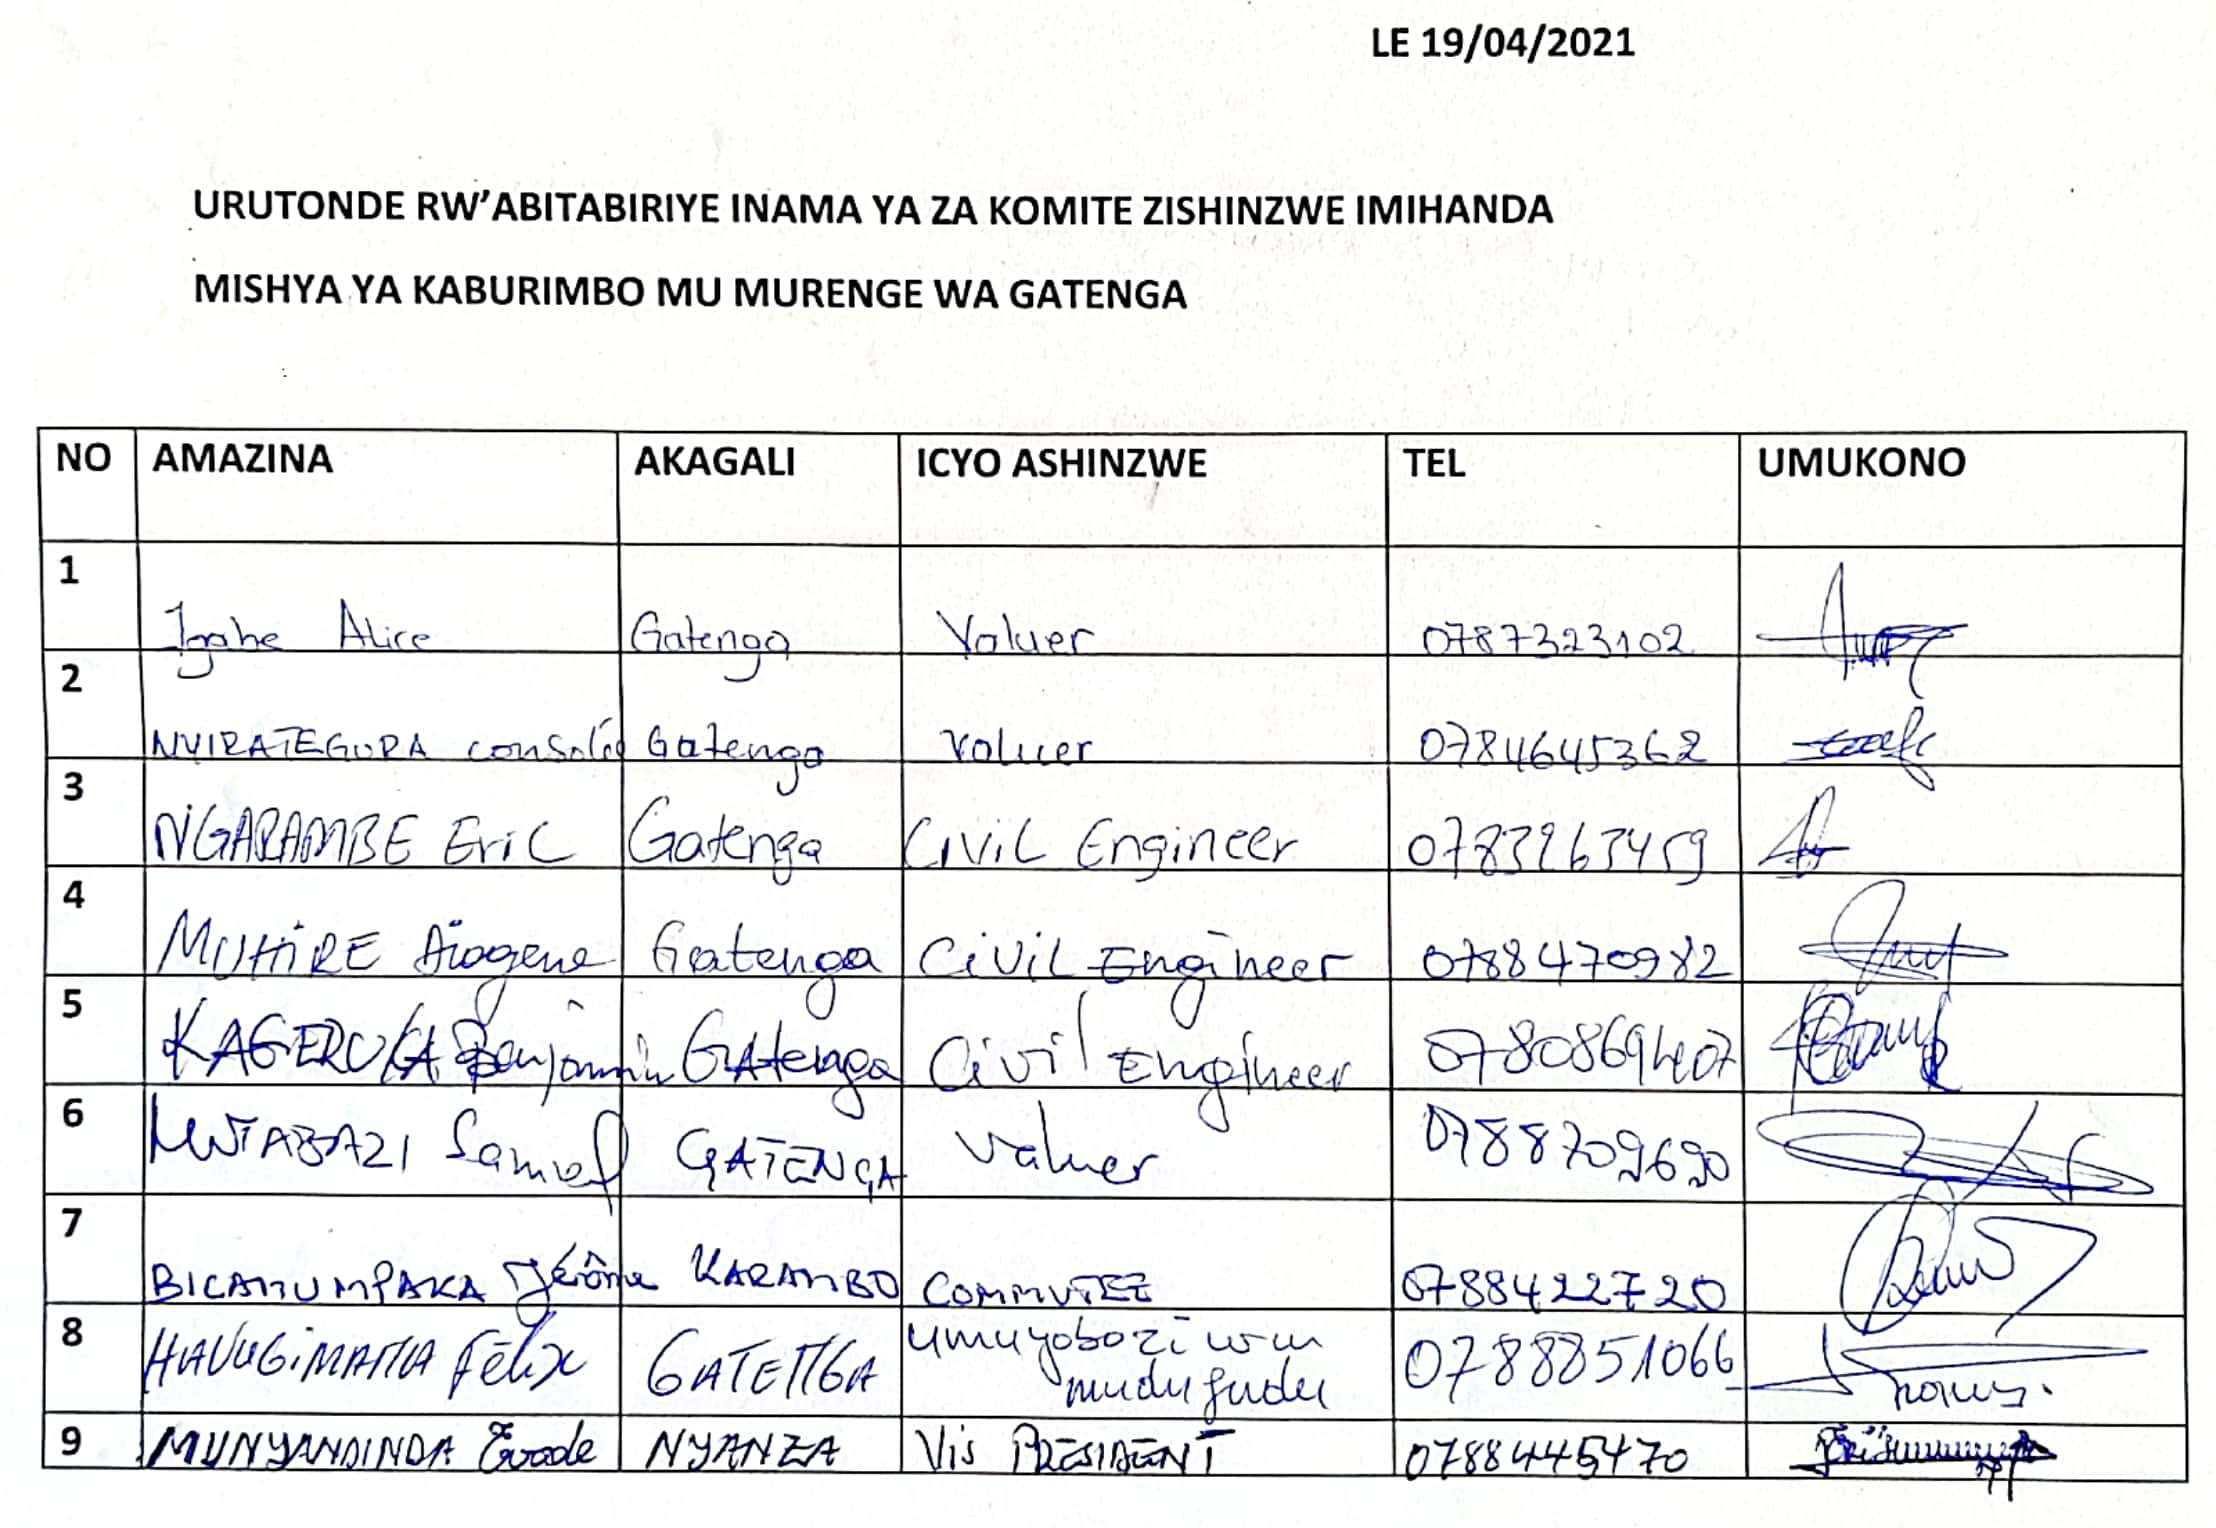 LE 19/04/2021
URUTONDE RW'ABITABIRIYE INAMA YA ZA KOMITE ZISHINZWE IMIHANDA
MISHYA YA KABURIMBO MU MURENGE WA GATENGA
NO AMAZINA AKAGALI ICYO ASHINZWE TEL UMUKONO
1 Igahe Alice Gatenga Valuer 0787323102
2 NYIRATEGURA consolée Gatenga Valuer 0784645362
3 NGARAMBE Eric Gatenga Civil Engineer 0783263459
4 MUHIRE Diogene Gatenga Civil Engineer 0788470982
5 KAGERUKA Benjamin GAtenga Civil Engineer 0780869407
6 Samuel GATENGA Valuer 0788709690
7 BICAMUMPAKA Jérôme KARAMBO COMMUTEE 0788422720
8 HAVUGIMANA Félix GATENGA umuyobozi w'um
mudugudu 0788851066
9 MUNYANDINDA Evode NYANZA Vis PRESIDENT 0788445470